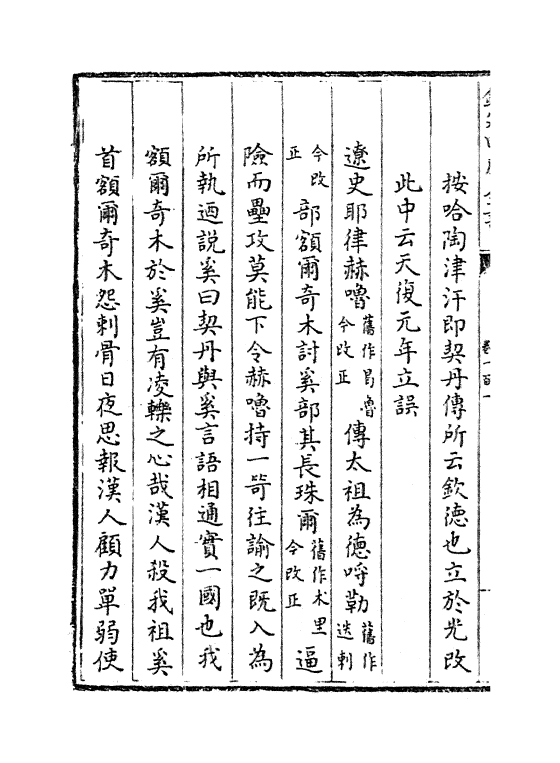 按哈陶津汗即契丹傳所云欽德也立於光改
此中云天復元年立誤
遼史耶律赫嚕舊作曷魯今改正傳太祖為德呼勒舊作迭剌
今改正部額爾奇木討奚部其長珠爾舊作术里今改正逼
險而壘攻莫能下令赫嚕持一笴往諭之既入為
所執迺說奚曰契丹與奚言語相通實一國也我
額爾奇木於奚豈有凌轢之心哉漢人殺我祖奚
首額爾奇木怨刺骨日夜思報漢人顧力單弱使